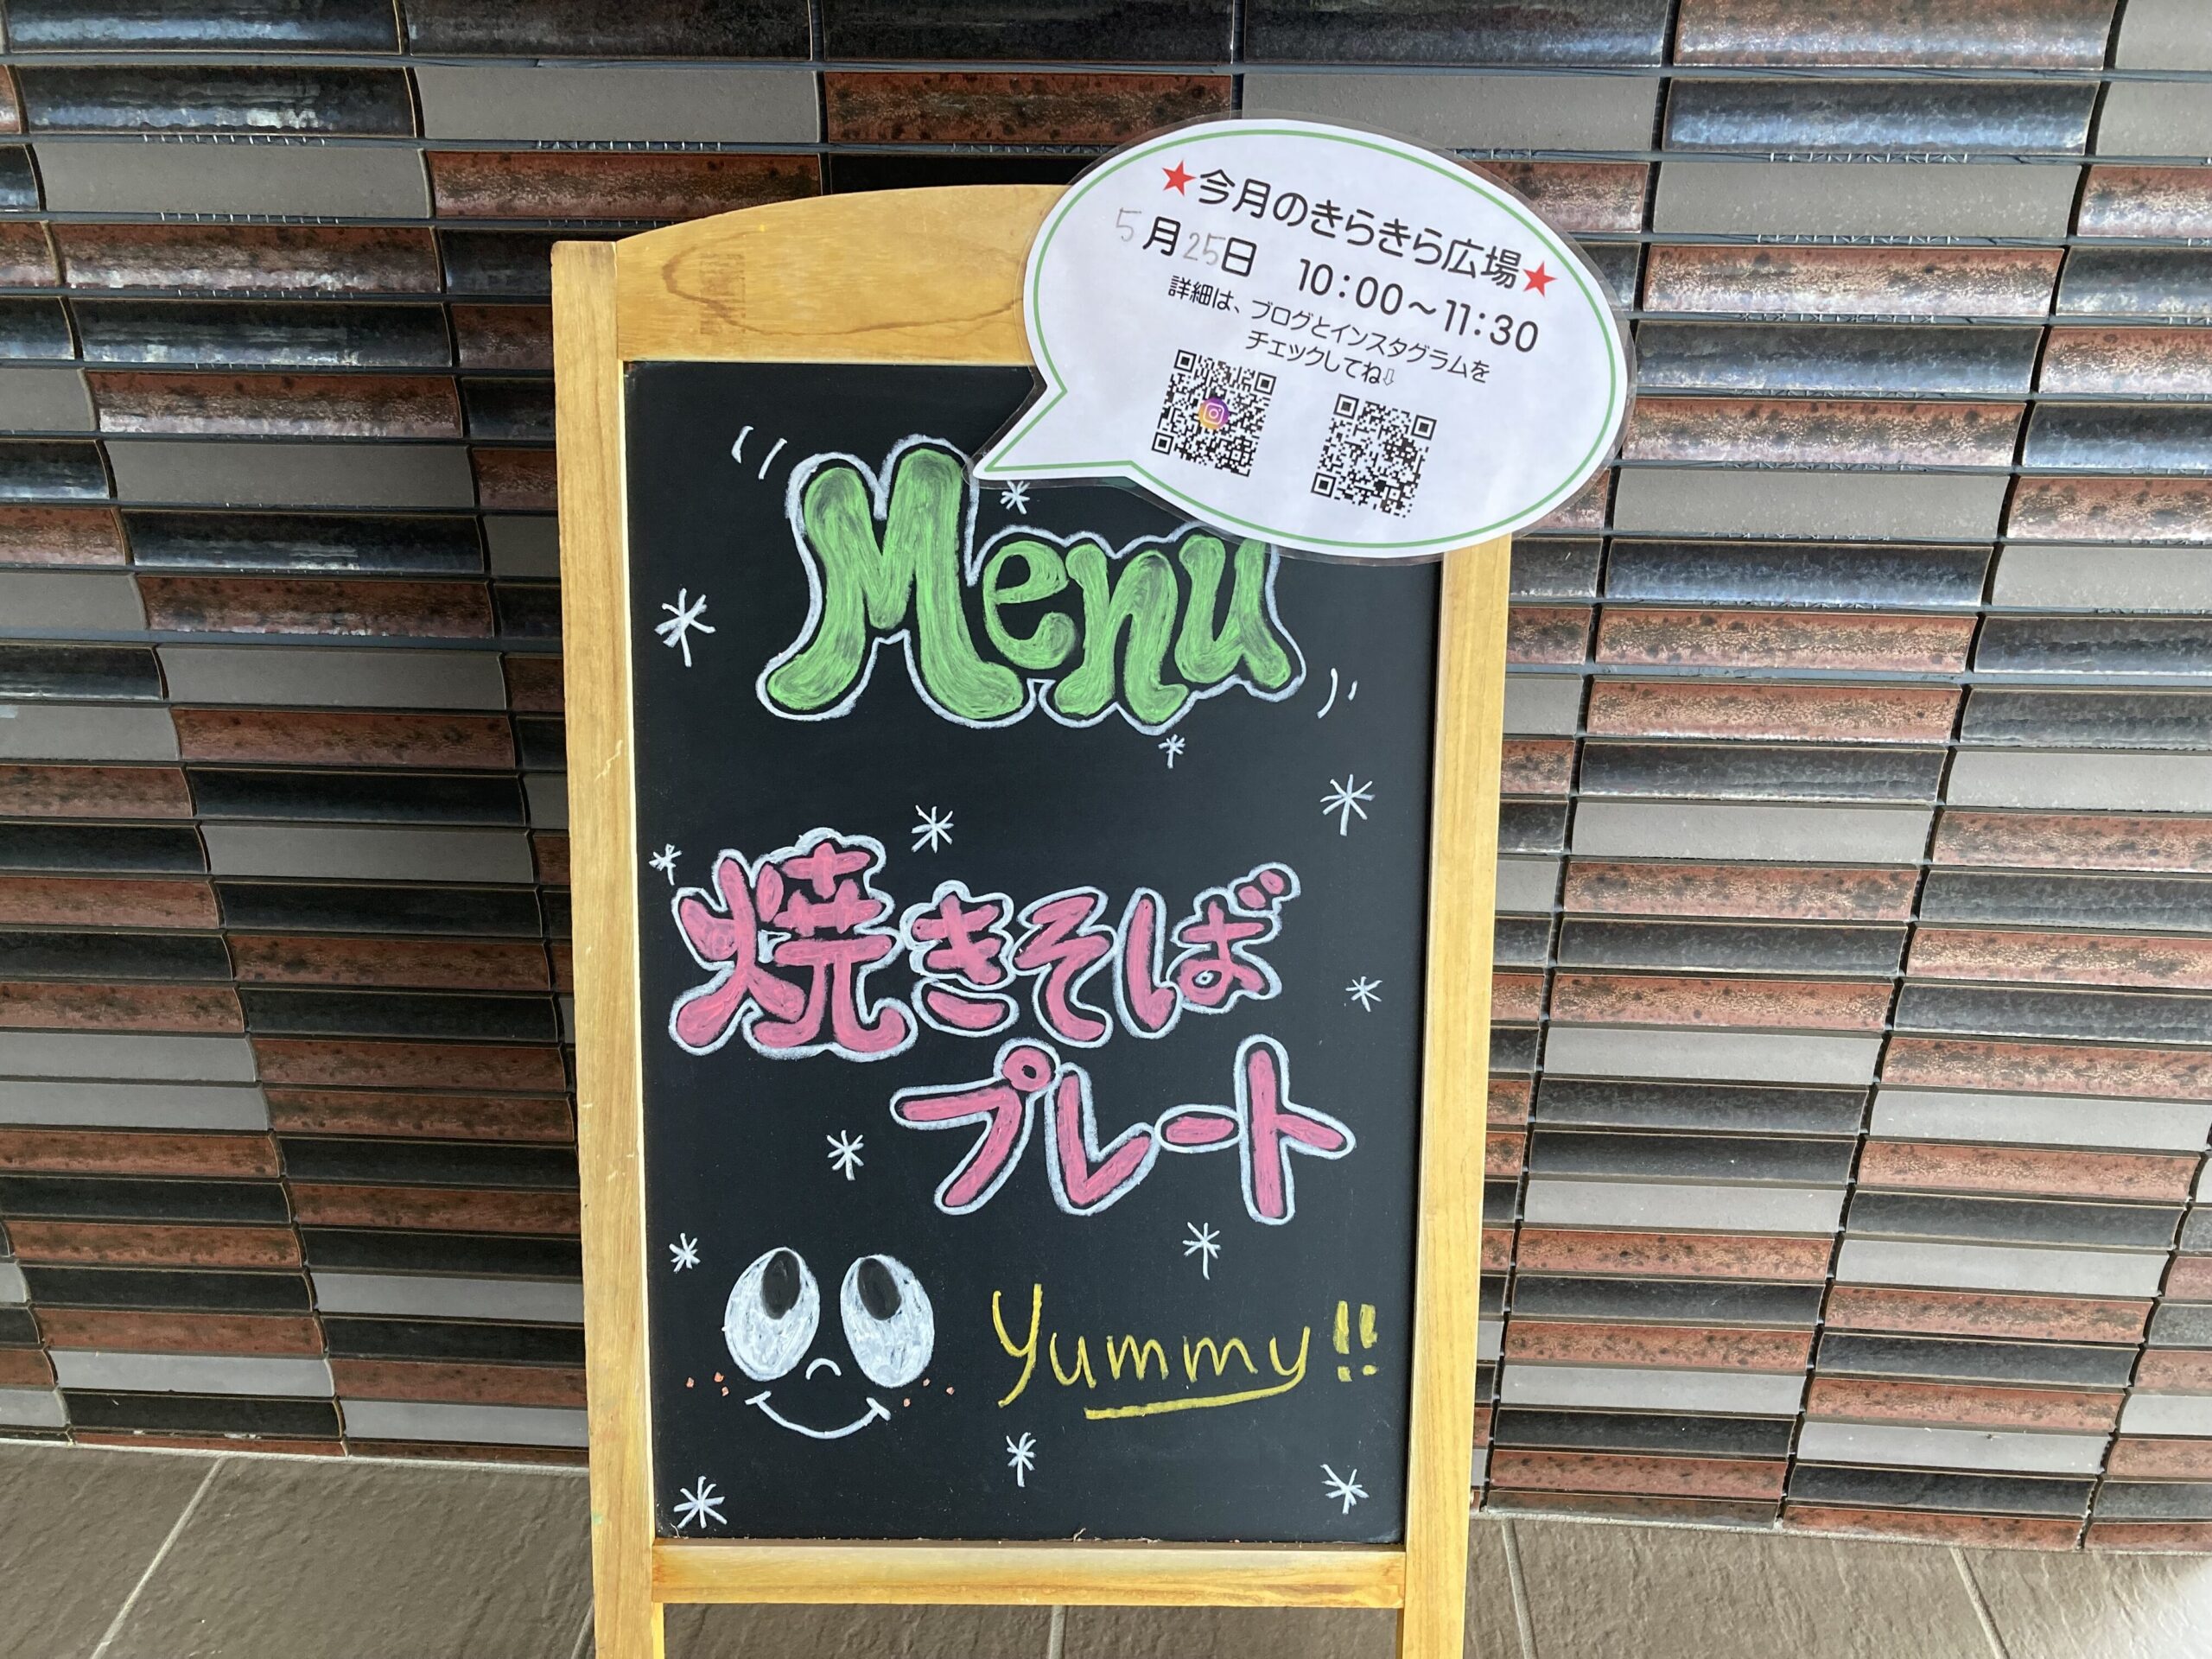 ★今月のきらきら広場★
5月25日 10:00～11:30
詳細は、ブログとインスタグラムを
チェックしてね⇩
Menu
焼きそば
プレート
Yummy!!